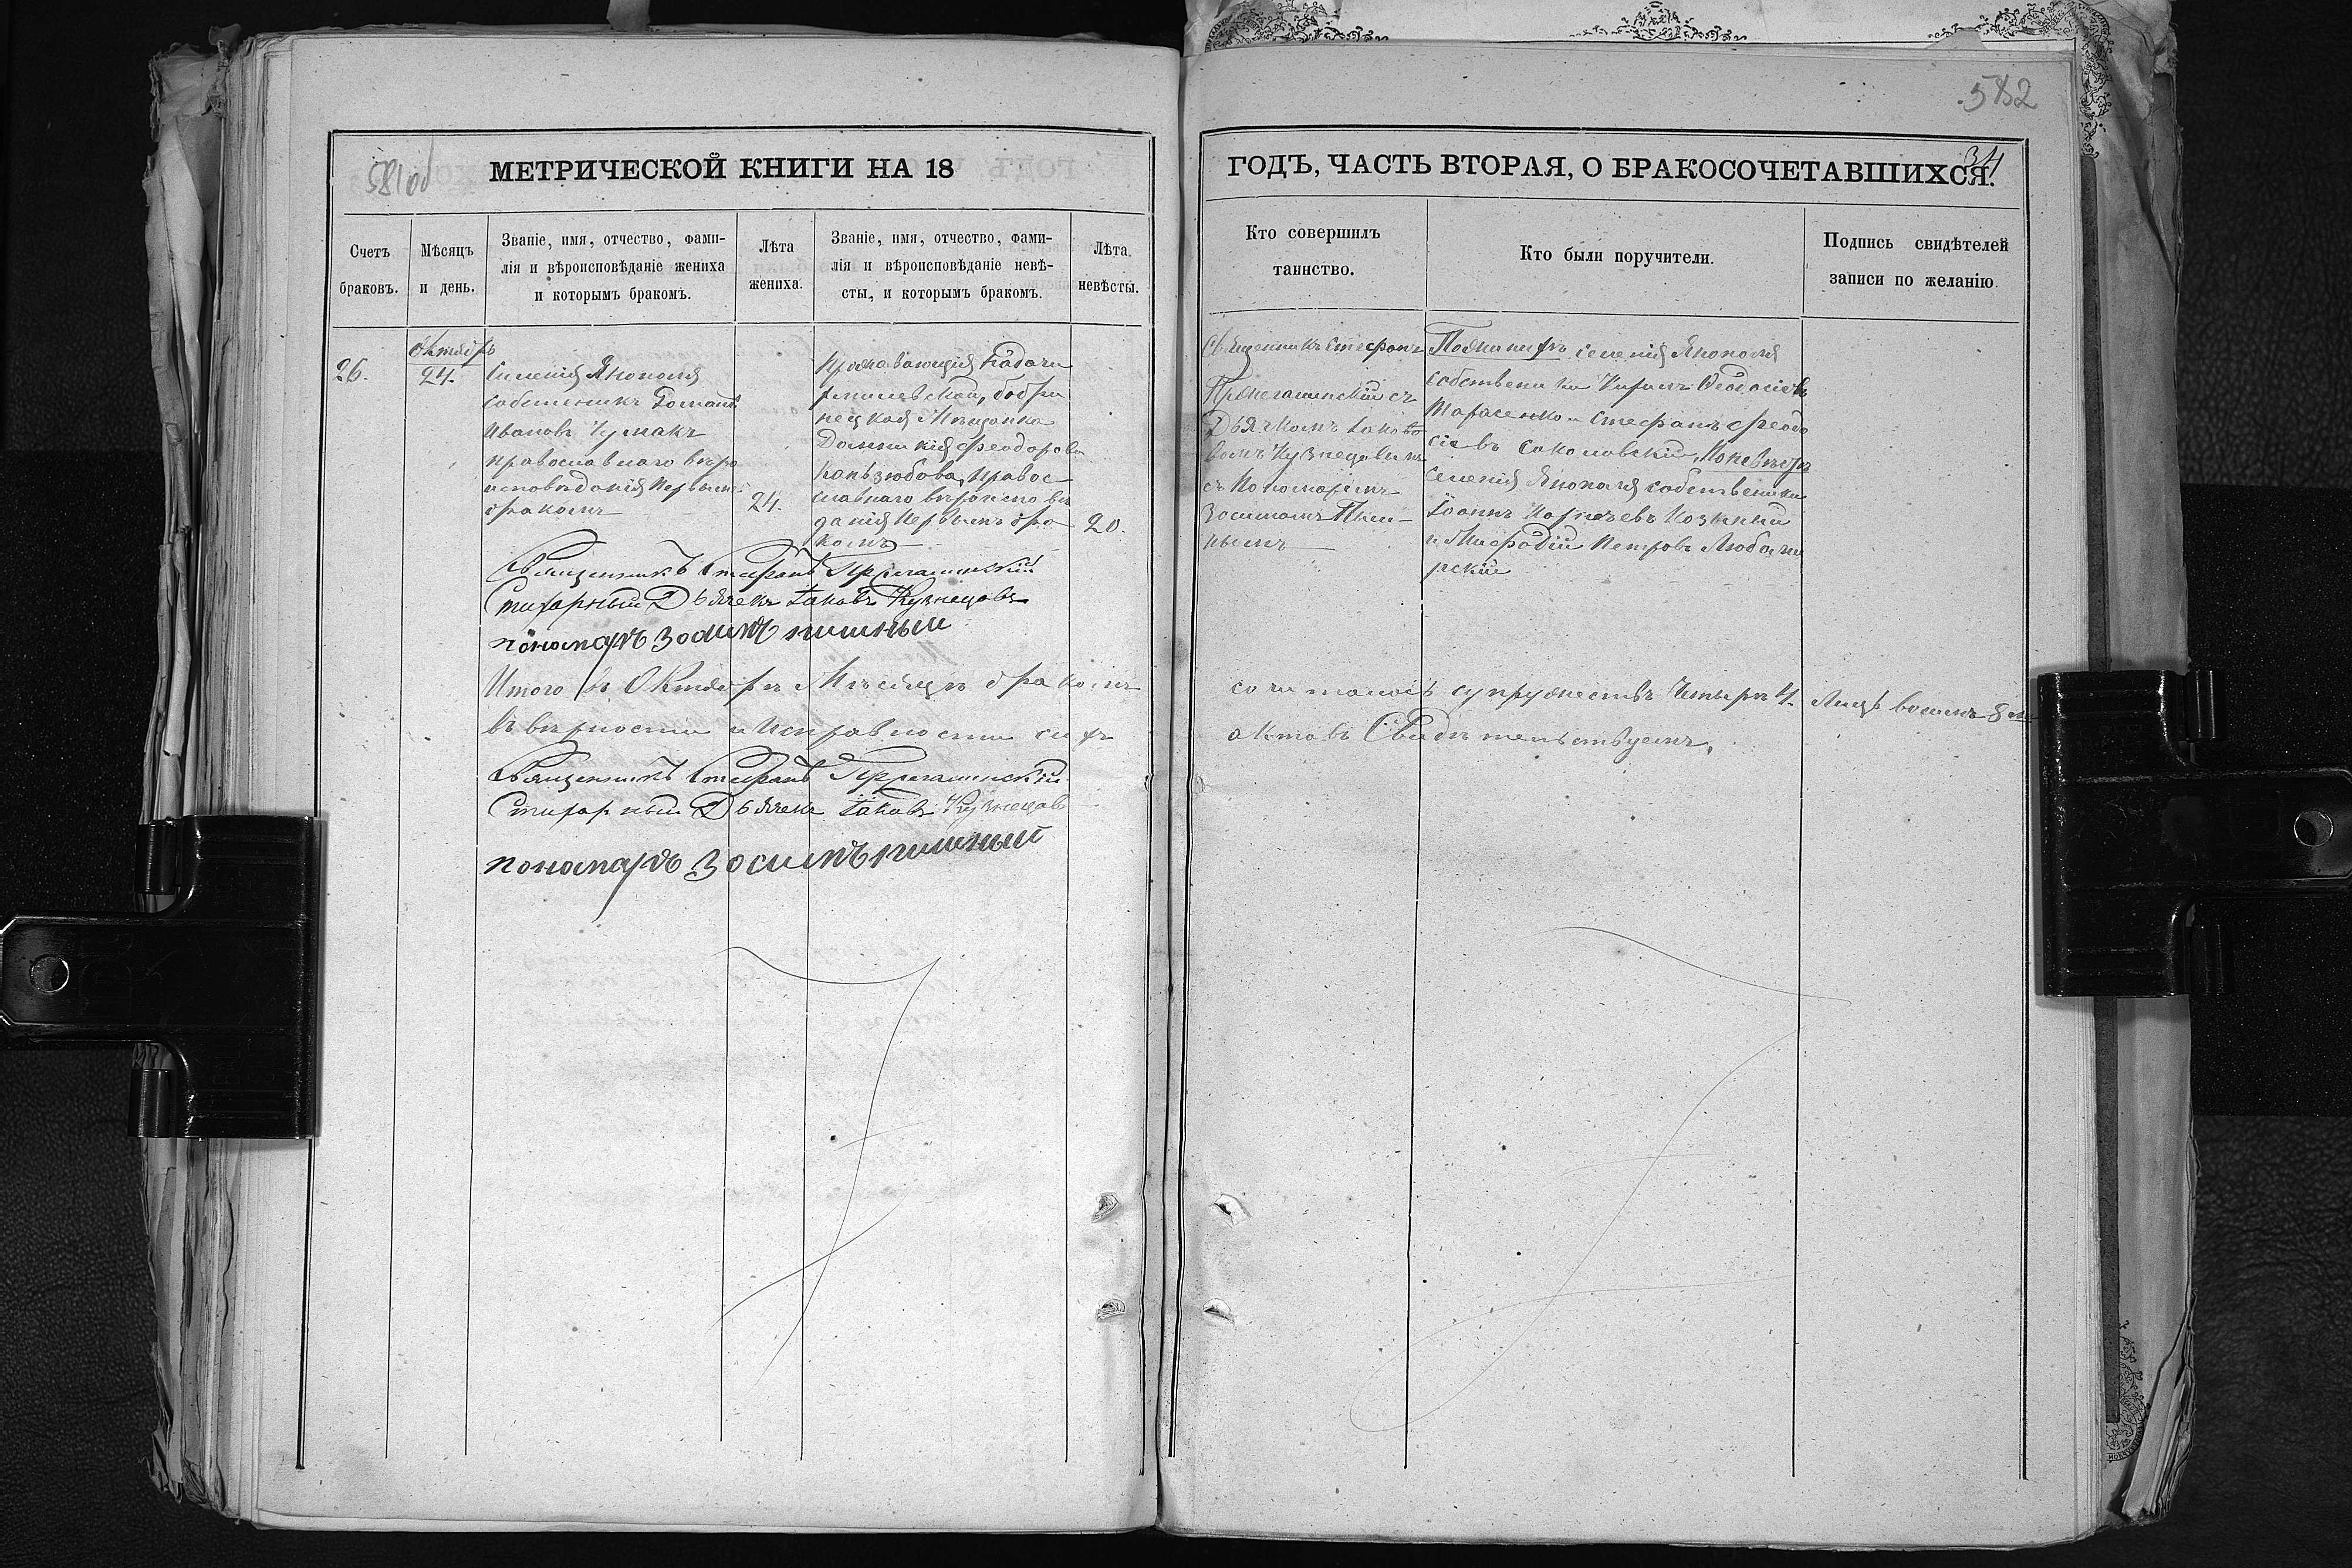 581 об
МЕТРИЧЕСКОЙ КНИГИ НА 18
Счетъ браковъ.
Мѣсяцъ и день.
Званіе, имя, отчество, фами-
лія и вѣроисповѣданіе жениха
и которымъ бракомъ.
Лѣта жениха.
Званіе, имя, отчество, фами-
лія и вѣроисповѣданіе невѣ-
сты, и которымъ бракомъ.
Лѣта невѣсты.
26.
Октябрь
24.
Селенія Янополя
собственикъ Романъ
Ивановъ Чумакъ
православнаго вѣро
исповѣданія первымъ
бракомъ
24.
проживающія
бобри
нецкая Мѣщанка
Домникія Феодорова
правос
славнаго вѣроисповѣ
данія первымъ бра
комъ
20.
Священникъ Стефанъ
Стихарный Дьячекъ Іаковъ Кузнецовъ
пономарь Зосимъ пишный
Итого въ Октябрѣ Мѣсяцѣ бракомъ
въ вѣрности и исправности сихъ
Священникъ Стефанъ
Стихарный Дьячекъ Іаковъ Кузнецовъ
пономарь Зосимъ пишный
582
34
ГОДЪ, ЧАСТЬ ВТОРАЯ, О БРАКОСОЧЕТАВШИХСЯ.
Кто совершилъ
таинство.
Кто были поручители.
Подпись свидѣтелей
записи по желанію.
Священникъ Стефанъ
съ
Дьячкомъ Іаково
вомъ Кузнецовымъ
съ Пономаремъ
Зосимомъ Пиш-
нымъ
По женихѣ селенія Янополя
собственики Кирилъ Ѳеодосіевъ
Тарасенко и Стефанъ Феодо
сіевъ Соколовскій, По невѣстѣ
селенія Янополя собственики
Іоаннъ
и Мефодій Петровъ
рскій
сочиталось супружествъ Четыре 4. Лицъ восемь 8
актовъ Свидѣтельствуемъ,